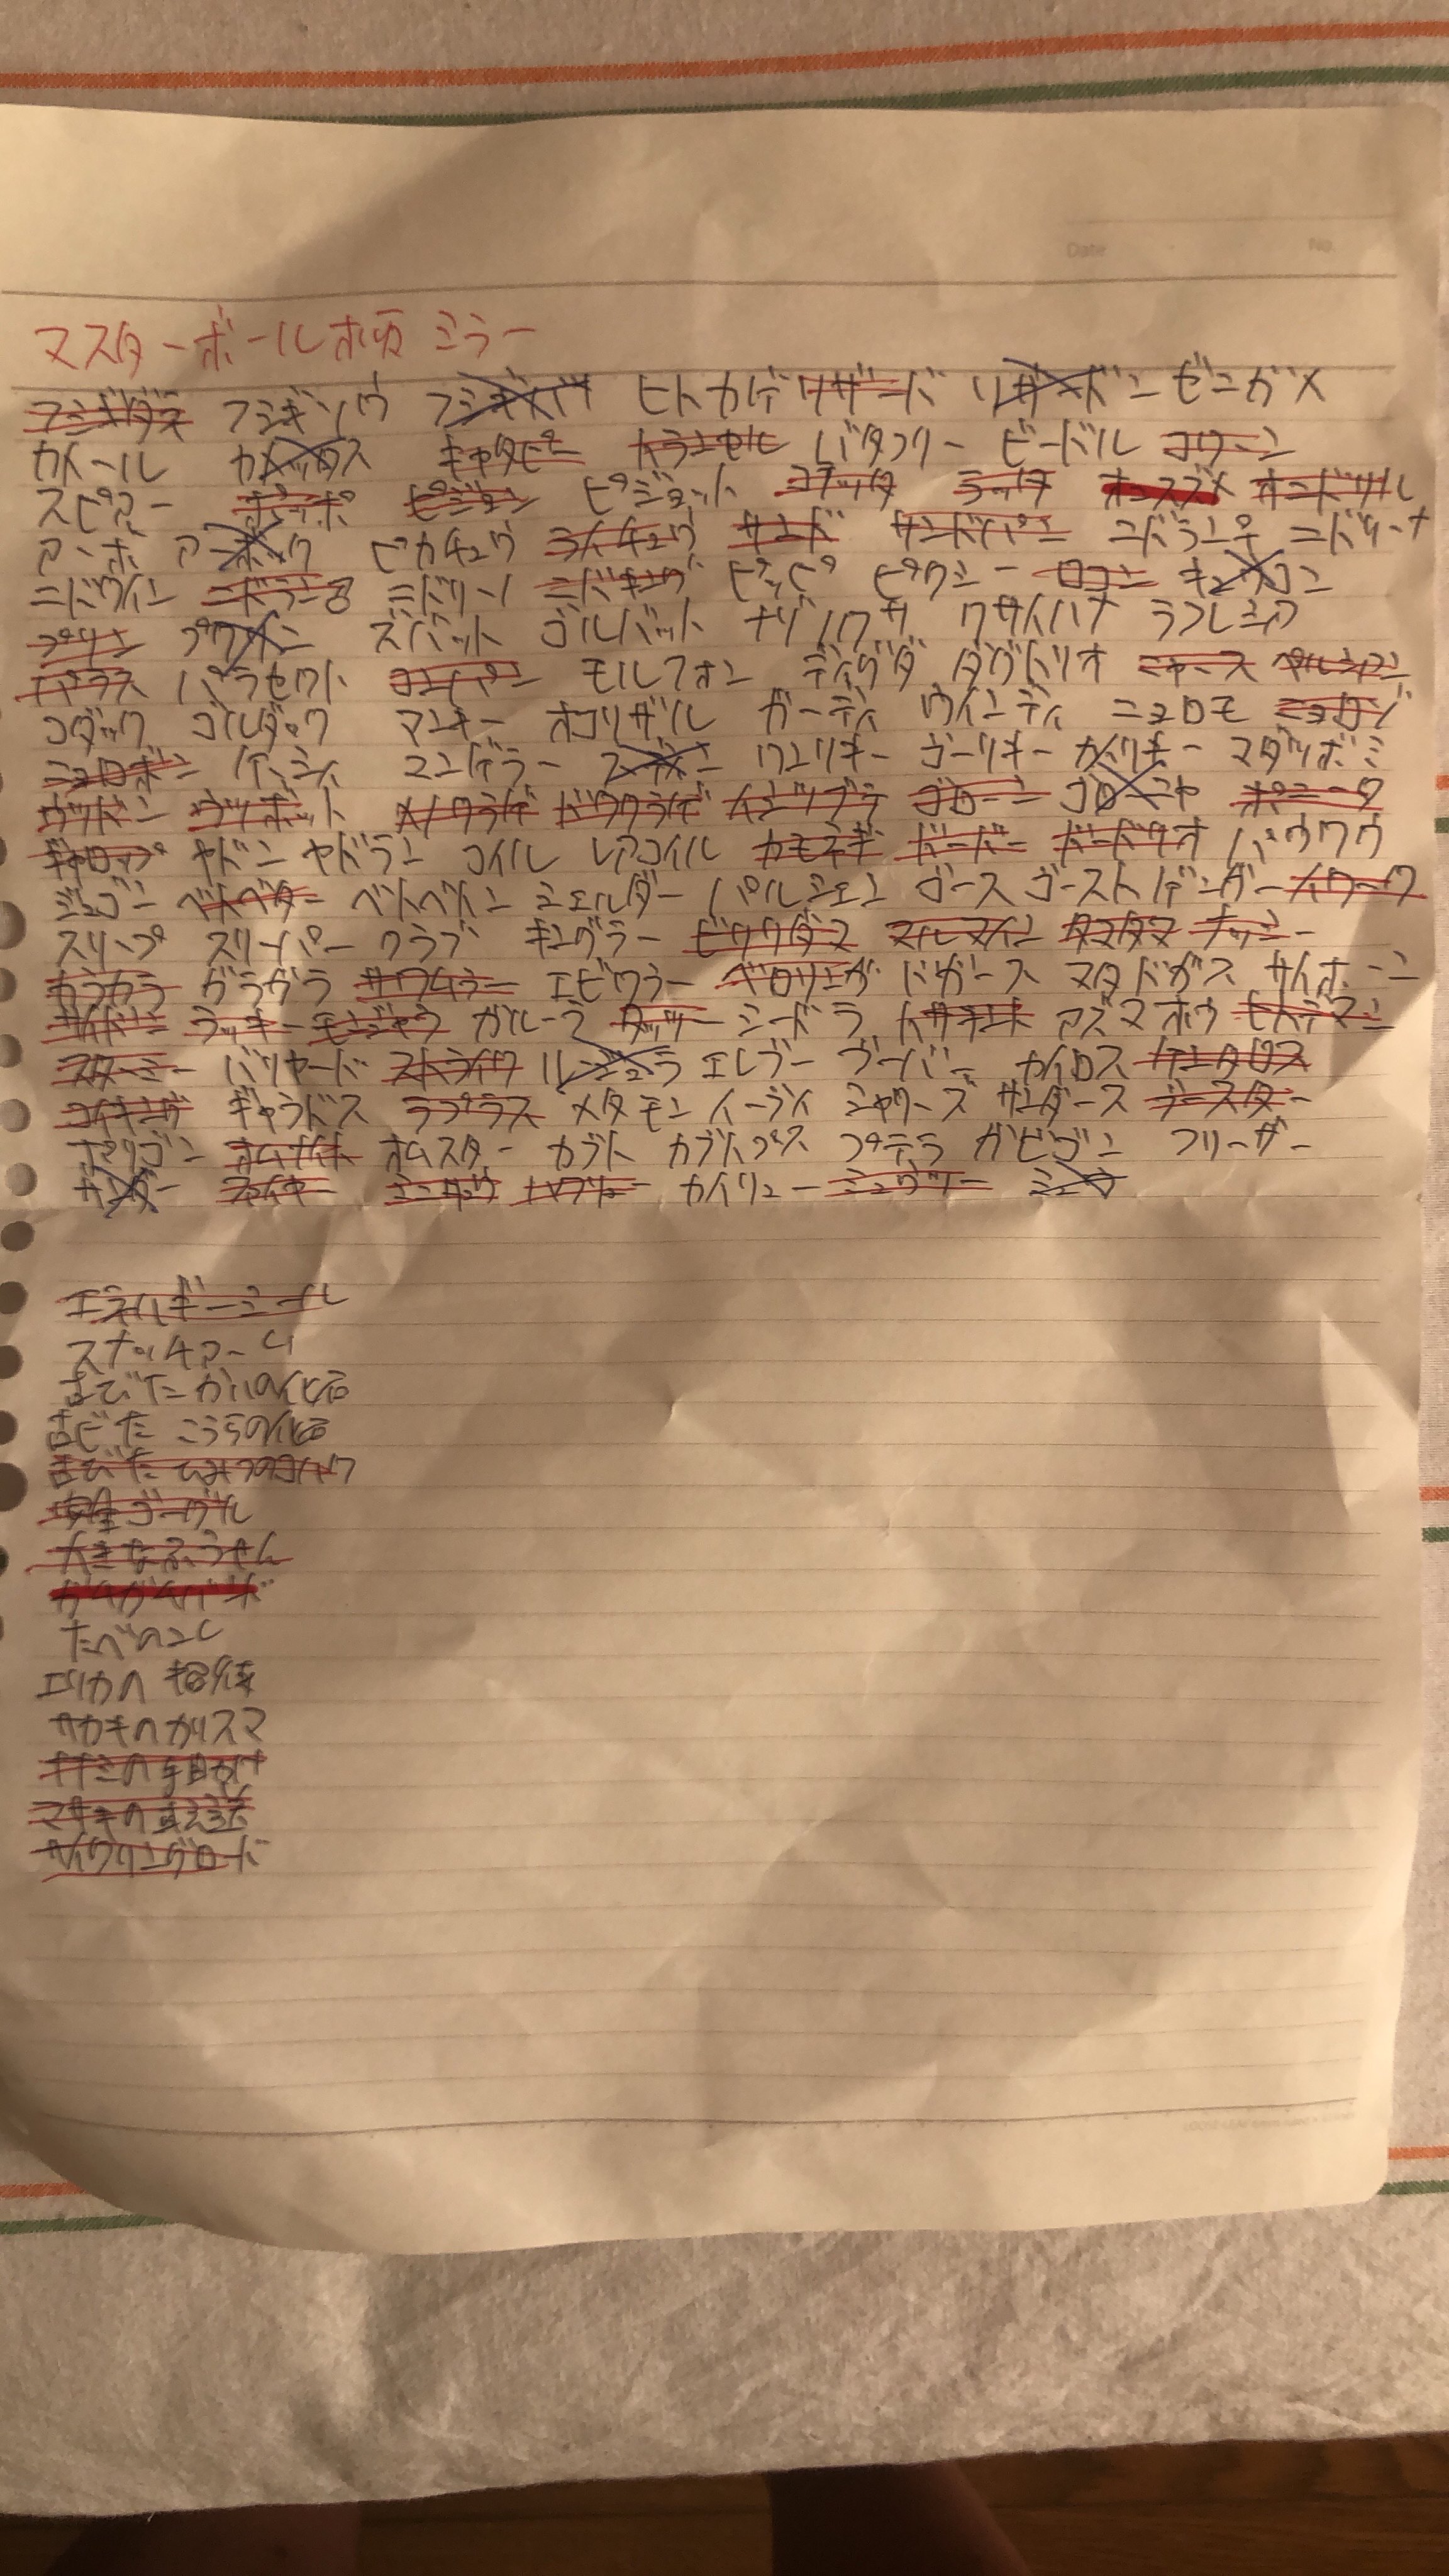 マスターボール柄 ミラー
フシギダネ フシギソウ フシギバナ ヒトカゲ リザード リザードン ゼニガメ
カメール カメックス キャタピー トランセル バタフリー ビードル コクーン
スピアー ポッポ ピジョン ピジョット コラッタ ラッタ オニスズメ オニドリル
アーボ アーボック ピカチュウ ライチュウ サンド サンドパン ニドラン♀ ニドリーナ
ニドクイン ニドラン♂ ニドリーノ ニドキング ピッピ ピクシー ロコン キュウコン
プリン プクリン ズバット ゴルバット ナゾノクサ クサイハナ ラフレシア
パラス パラセクト コンパン モルフォン ディグダ ダグトリオ ニャース ペルシアン
コダック ゴルダック マンキー オコリザル ガーディ ウインディ ニョロモ ニョロゾ
ニョロボン ケーシィ ユンゲラー フーディン ワンリキー ゴーリキー カイリキー マダツボミ
ウツドン ウツボット メノクラゲ ドククラゲ イシツブテ ゴローン ゴローニャ ポニータ
ギャロップ ヤドン ヤドラン コイル レアコイル カモネギ ドードー ドードリオ パウワウ
ジュゴン ベトベター ベトベトン シェルダー パルシェン ゴース ゴースト ゲンガー イワーク
スリープ スリーパー クラブ キングラー ビリリダマ マルマイン タマタマ ナッシー
カラカラ ガラガラ サワムラー エビワラー ベロリンガ ドガース マタドガス サイホーン
サイドン ラッキー モンジャラ ガルーラ タッツー シードラ トサキント アズマオウ ヒトデマン
スターミー バリヤード ストライク ルージュラ エレブー ブーバー カイロス ケンタロス
コイキング ギャラドス ラプラス メタモン イーブイ シャワーズ サンダース ブースター
ポリゴン オムナイト オムスター カブト カブトプス プテラ カビゴン フリーザー
サンダー ファイヤー ミニリュウ ハクリュー カイリュー ミュウツー ミュウ
エネルギーシール
スナッチアーム
古びたかいの化石
古びた こうらの化石
古びたひみつのコハク
安全ゴーグル
大きなふうせん
たべのこし
エリカの招待
サカキのカリスマ
ナナミの手助け
サイクリングロード